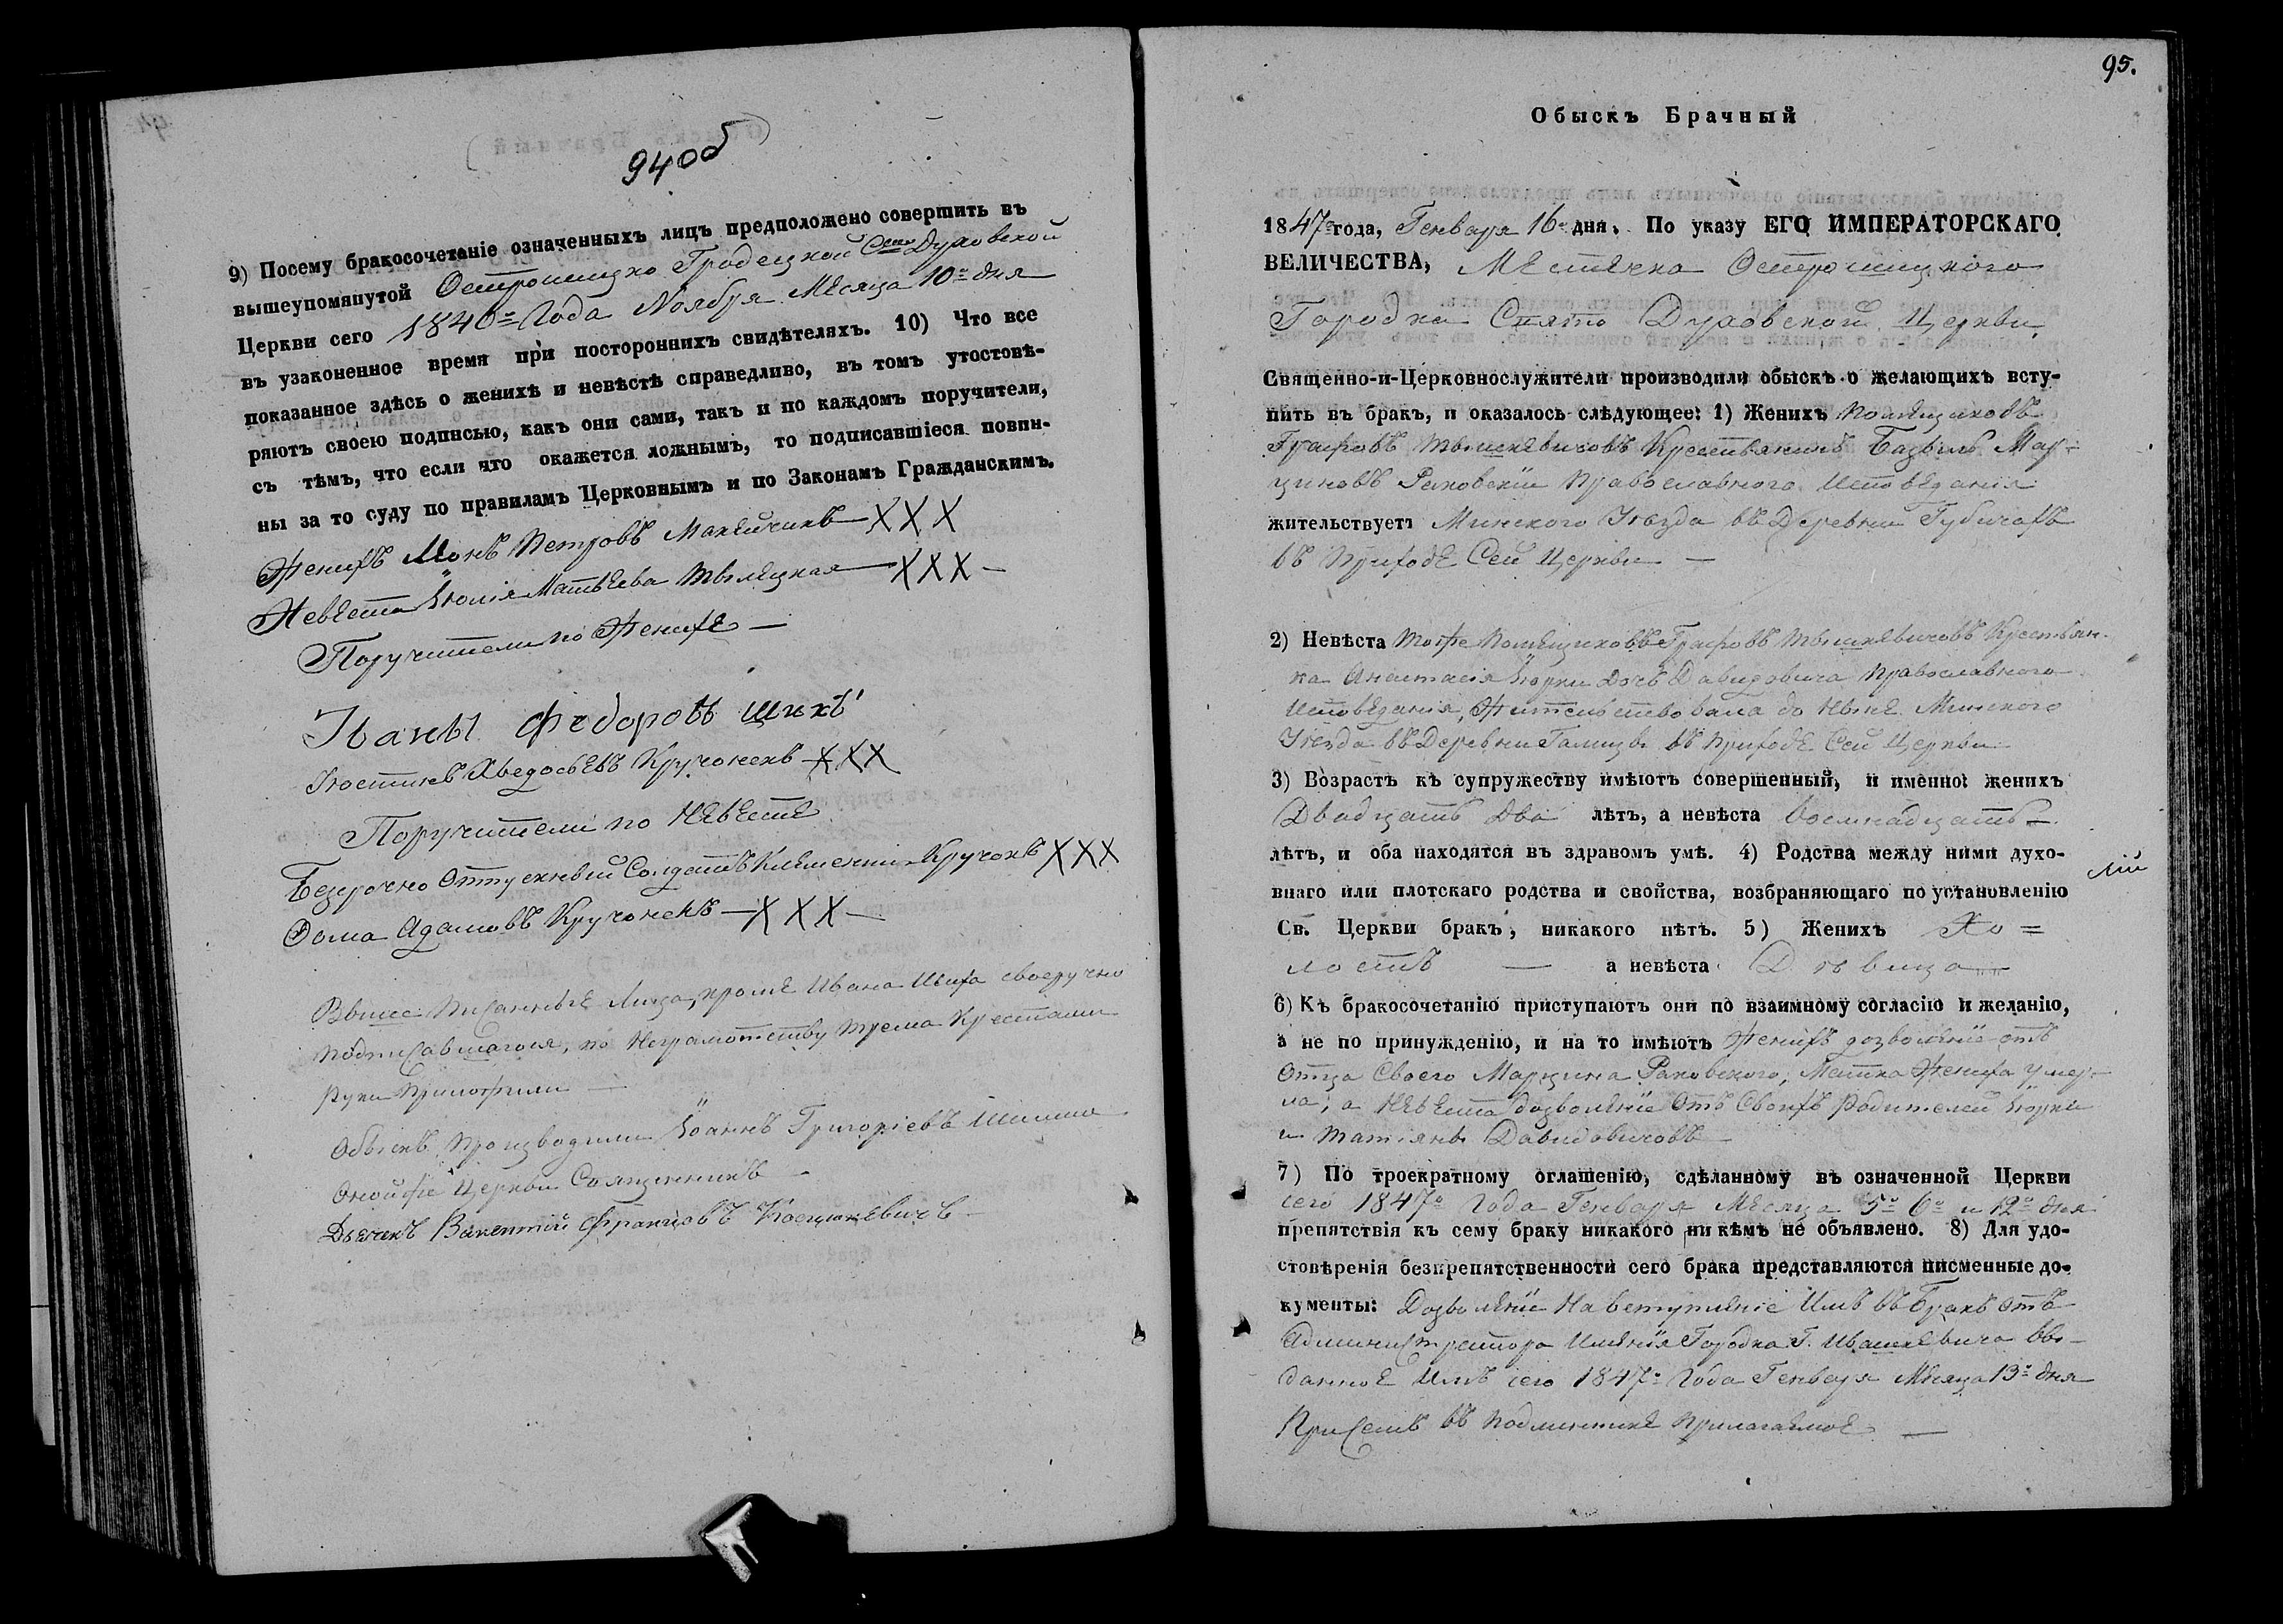 94об
9) Посему бракосочетаніе означенныхъ лицъ предположено совершить въ
вышеупомянутой Острошицко Гродецкой Свято Духовской
Церкви сего 1846го Года Ноября Мѣсяца 10го дня
въ узаконенное время при постороннихъ свидѣтеляхъ. 10) Что все
показанное здѣсь о женихѣ и невѣстѣ справедливо, въ томъ утостовѣ-
ряютъ своею подписью, какъ они сами, такъ и по каждомъ поручители,
съ тѣмъ, что если что окажется ложнымъ, то подписавшіеся повин-
ны за то суду по правиламъ Церковнымъ и по Законамъ Гражданскимъ.
Женихъ Іѵонъ Петровъ Макейчикъ XXX
Невѣста Юлія Матѣева Тылецкая XXX
Поручители по Женихѣ
Иванъ Федоровъ
Юстинъ Хведосѣевъ Кручонекъ XXX
Поручители по Невѣстѣ
Безсрочно Отпускный Солдатъ Клементій Кручокъ XXX
Фома Адамовъ Кручонекъ XXX
Выше Писанные Лица, кромѣ Ивана своеручно
подписавшагося, по Неграмотству трема Крестами
Руки Приложили
Обыскъ Производили Іоаннъ Григоріевъ
Оной же Церкви Священникъ
Дьячекъ Викентій Францовъ Костюкевичъ
95.
Обыскъ Брачный
1847го года, Генваря 16го дня. По указу ЕГО ИМПЕРАТОРСКАГО
ВЕЛИЧЕСТВА, Мѣстечка Острошицкого
Городка Свято Духовской Церкви
Священно-и-Церковнослужители производили обыскъ о желающихъ всту-
пить въ бракъ, и оказалось слѣдующее: 1) Женихъ Помѣщиковъ
Графовъ Тышкевичовъ Крестьянинъ Базыль Мар-
циновъ Раковскій Православного Исповѣданія
жительствуетъ Минского Уѣзда въ Деревни Губичахъ
въ Приходѣ Сей Церкви
2) Невѣста Тоже Помѣщиковъ Графовъ Тышкевичовъ Крестьян-
ка Анастасія Юрки Дочъ Давидовича Православного
Исповѣданія, Жительствовала до Нынѣ Минского
Уѣзда въ Деревни Галицы въ Приходѣ Сей Церкви
3) Возрастъ къ супружеству имѣютъ совершенный, и именно: женихъ
Двадцать два лѣтъ, а невѣста восемнадцать
лѣтъ, и оба находятся въ здравомъ умѣ. 4) Родства между ними духо-
внаго или плотскаго родства и свойства, возбраняющаго по установленію
Св. Церкви бракъ, никакого нѣтъ. 5) Женихъ Хо=
лостъ а невѣста Дѣвица
6) Къ бракосочетанію приступаютъ они по взаимному согласію и желанію,
а не по принужденію, и на то имѣютъ Женихъ дозволеніе отъ
Отца Своего Марцина Раковского, Матка Жениха умер-
ла, а Невѣста дозволеніе Отъ Своихъ Родителей Юрки
и Татіяны Давидовичовъ
7) По троекратному оглашенію, сдѣланному въ означенной Церкви
сего 1847го Года Генваря Мѣсяца 5го 6го и 12го дня
препятствія къ сему браку никакого ни кѣмъ не объявлено. 8) Для удо-
стовѣренія безпрепятственности сего брака представляются писменные до-
кументы: Дозволеніе На вступленіе Имъ въ Бракъ отъ
Администратора Имѣнія Городка Г. Ивашкевича вы-
данное Имъ сего 1847го Года Генваря Мѣсяца 13го дня
При Семъ въ Подлинникѣ Прилагаемое